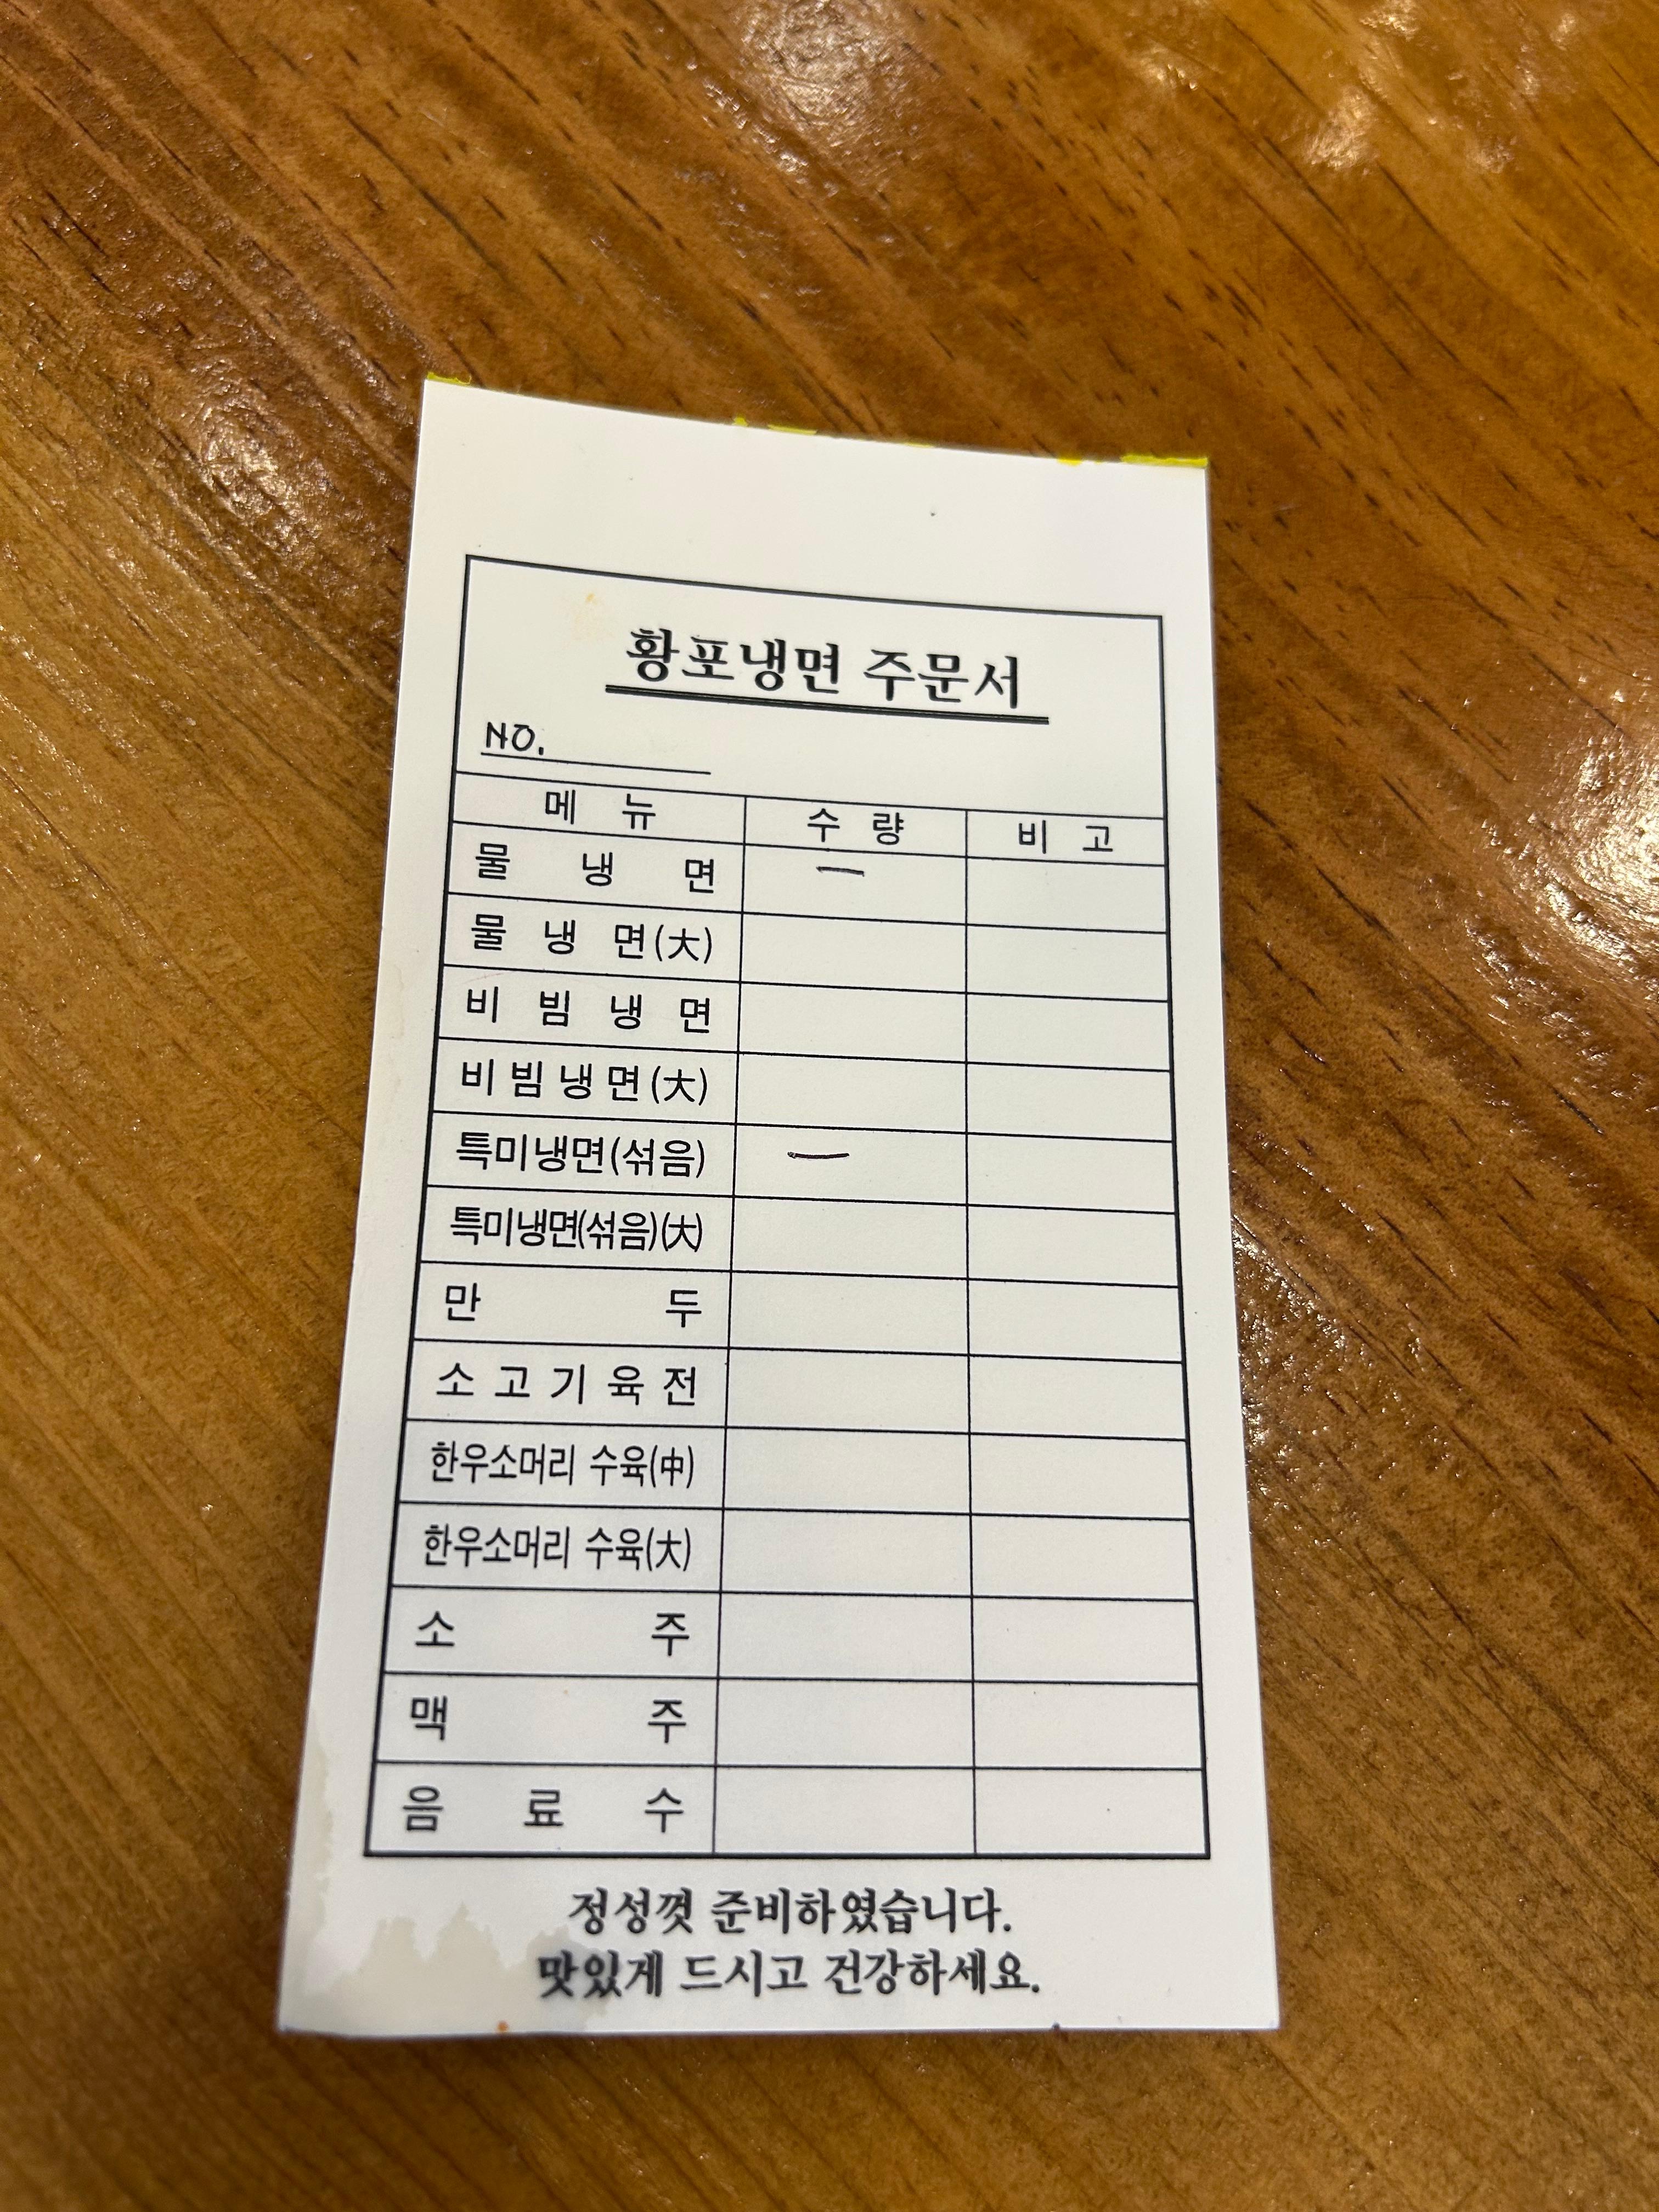 황포냉면 주문서
NO.
메 뉴 수 량 비 고
물 냉 면 一
물 냉 면(大)
비 빔 냉 면
비빔냉면(大)
특미냉면(섞음) 一
특미냉면(섞음)(大)
만 두
소고기육전
한우소머리 수육(中)
한우소머리 수육(大)
소 주
맥 주
음 료 수
정성껏 준비하였습니다.
맛있게 드시고 건강하세요.